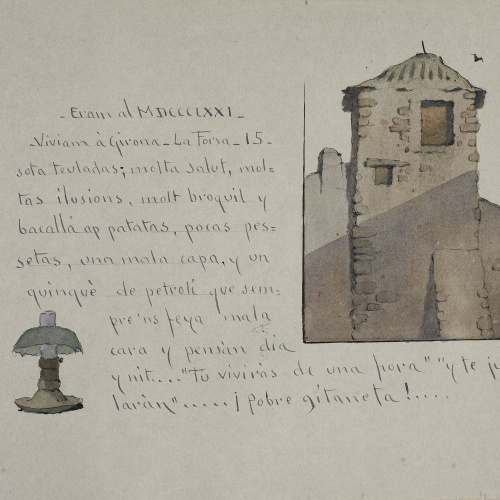 - Eram al MDCCCLXXI -
- Viviam à Girona - La Forsa - 15 -
sota teuladas; molta salut, mol=
tas ilusions, molt broquil y
bacallá ap patatas, pocas pes=
setas, una mala capa, y un
quinqué de petroli que sem=
pre 'ns feya mala
cara y pensàn dia
y nit... "Tu vivirás de una hora" "y te ju
laràn"..... ¡pobre gitaneta!....